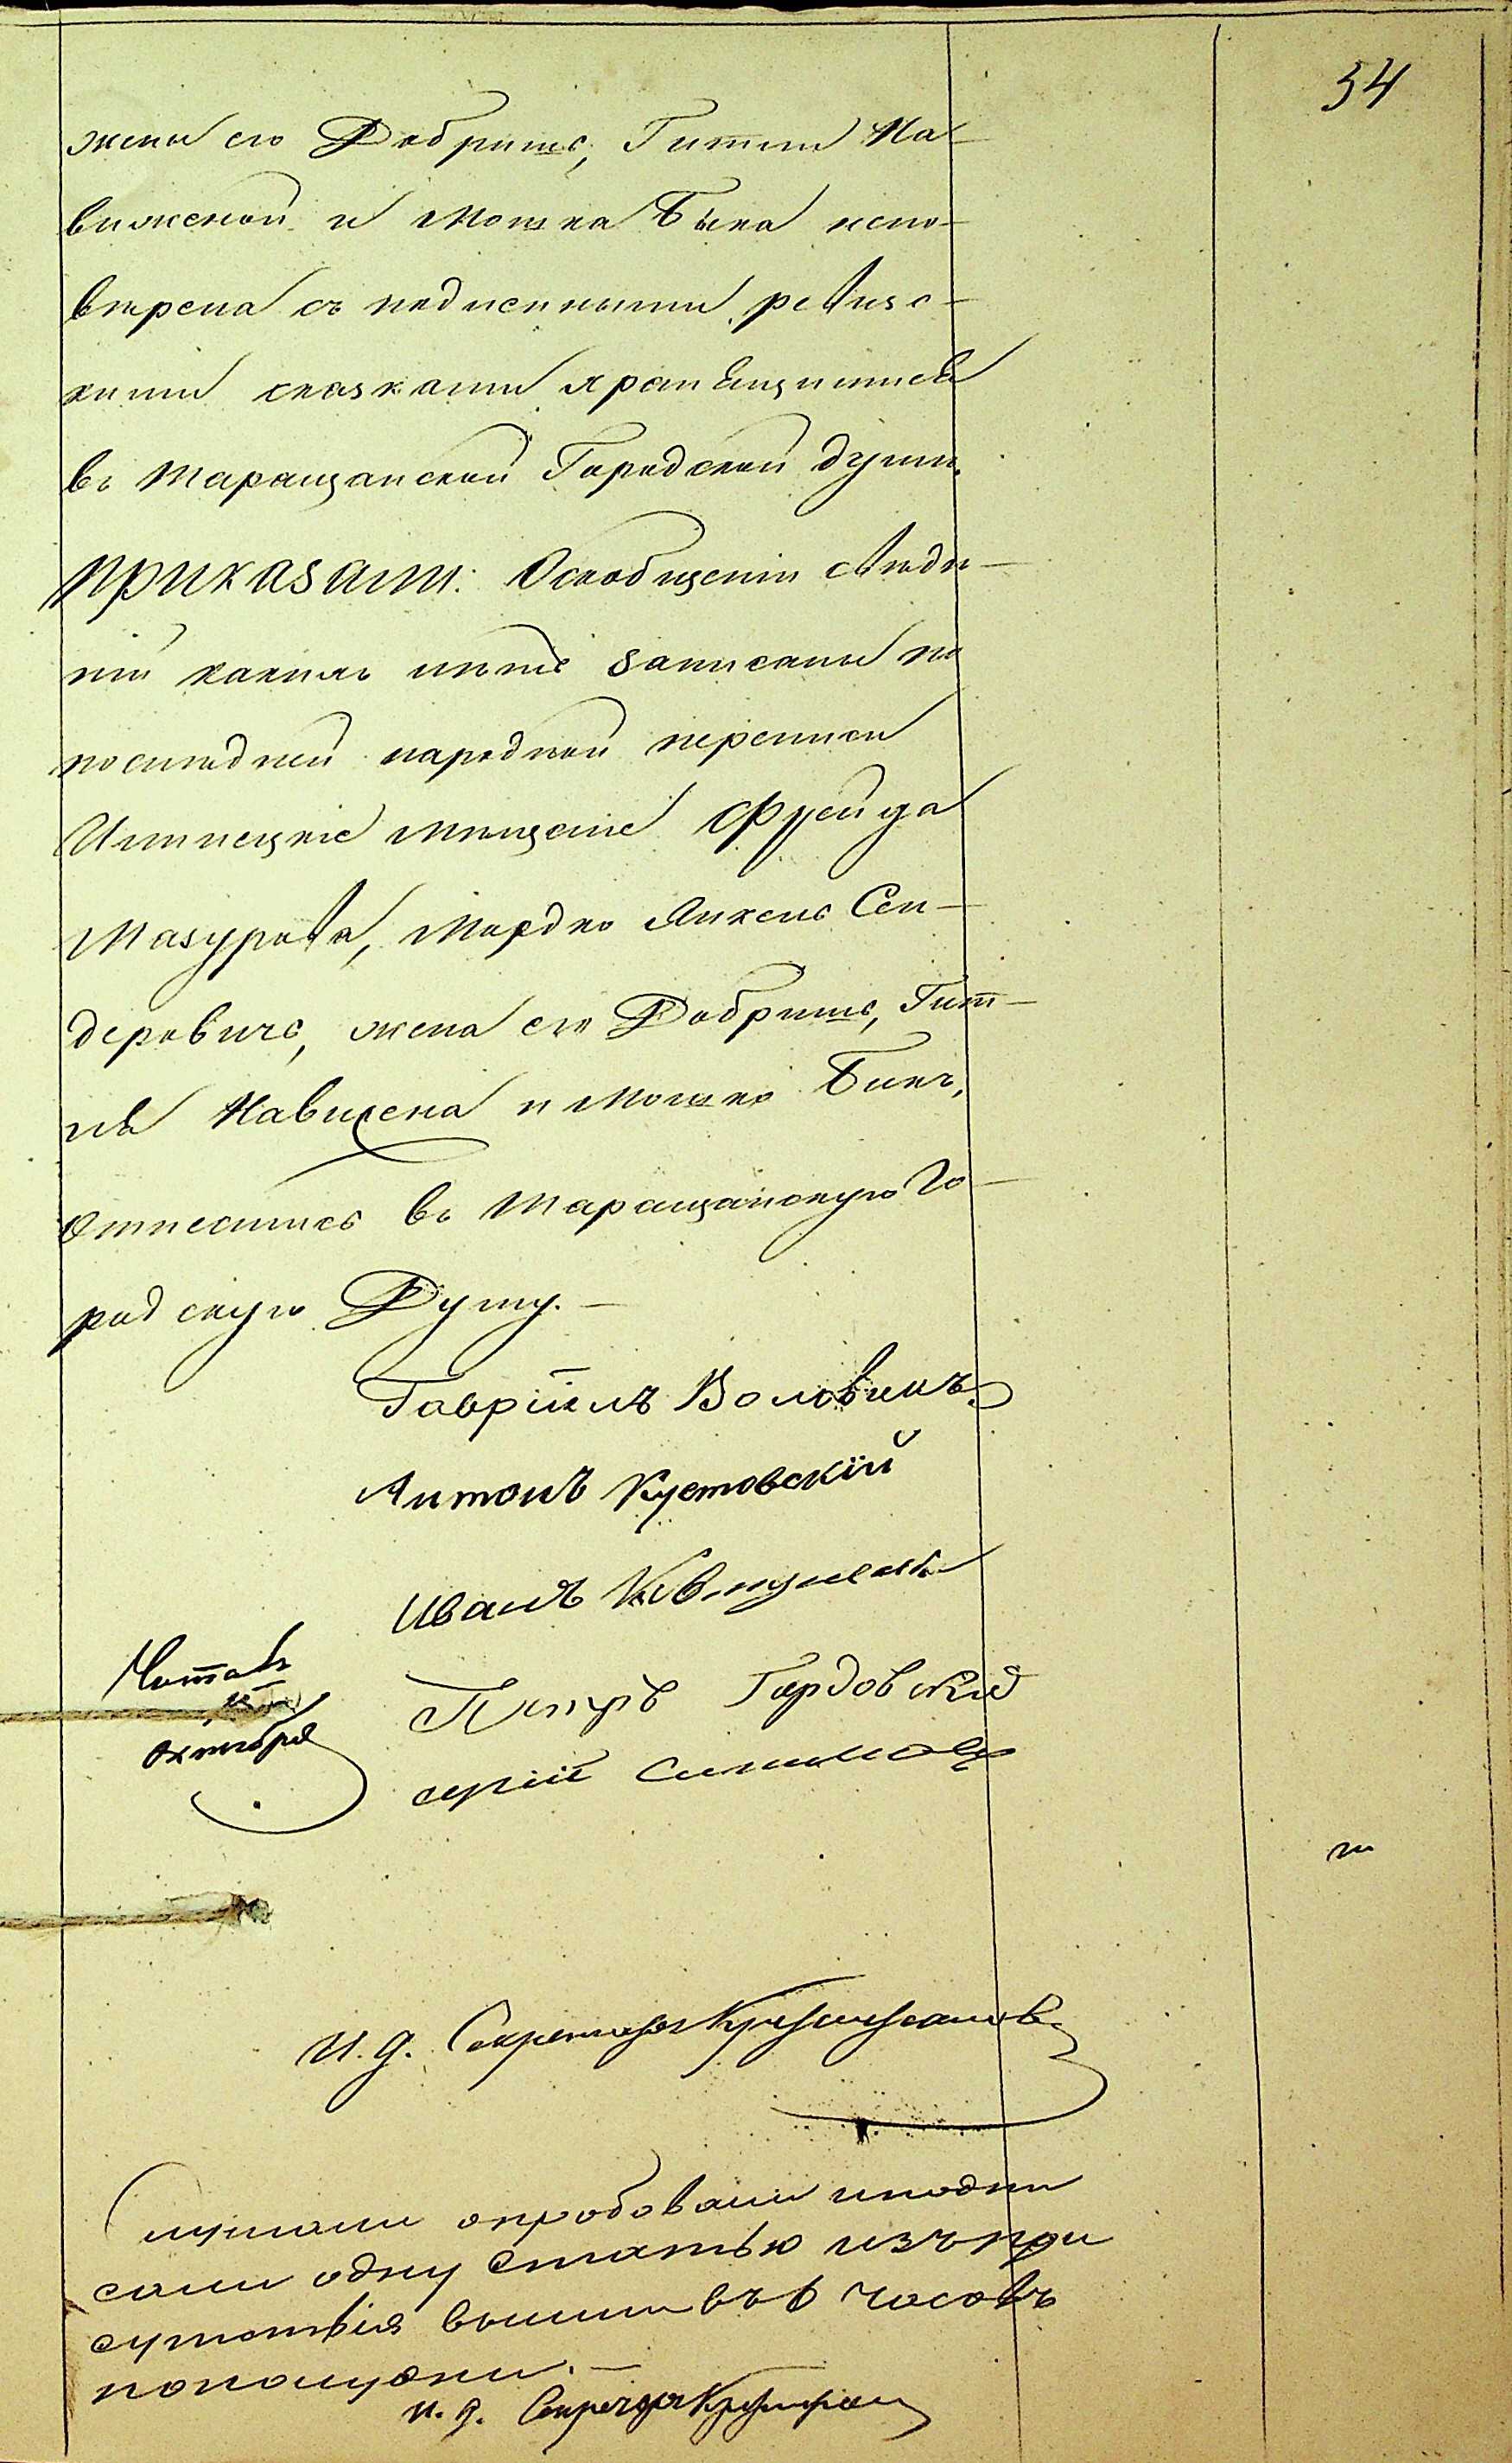 34
жены его Добришъ, Гитли На-
виженой и Мошка Быка испо-
втрена съ подленными ревизс-
кими сказками хранящимися
въ Таращанской Городской думѣ.
Приказали: О сообщеніи свѣдѣ-
ній какихъ лѣтъ записаны по
послѣдней народной переписи
мѣщане Фрейда
Мазурова, Мордко Янкель Сен-
деровичъ, жена его Добришъ, Гит-
ля Навижена и Мошко Быкъ,
отнестись въ Таращанскую Го-
родскую Думу. —
Гавріилъ Воловикъ
Антонъ Кустовскій
Иванъ
Петръ Гордовскій
Читалъ
октября
И. д. Секретаря
Слушали опробовали и подпи
сали одну статью изъ при
сутствія вышли въ 6 часовъ
пополудни. —
И. д. Секретаря